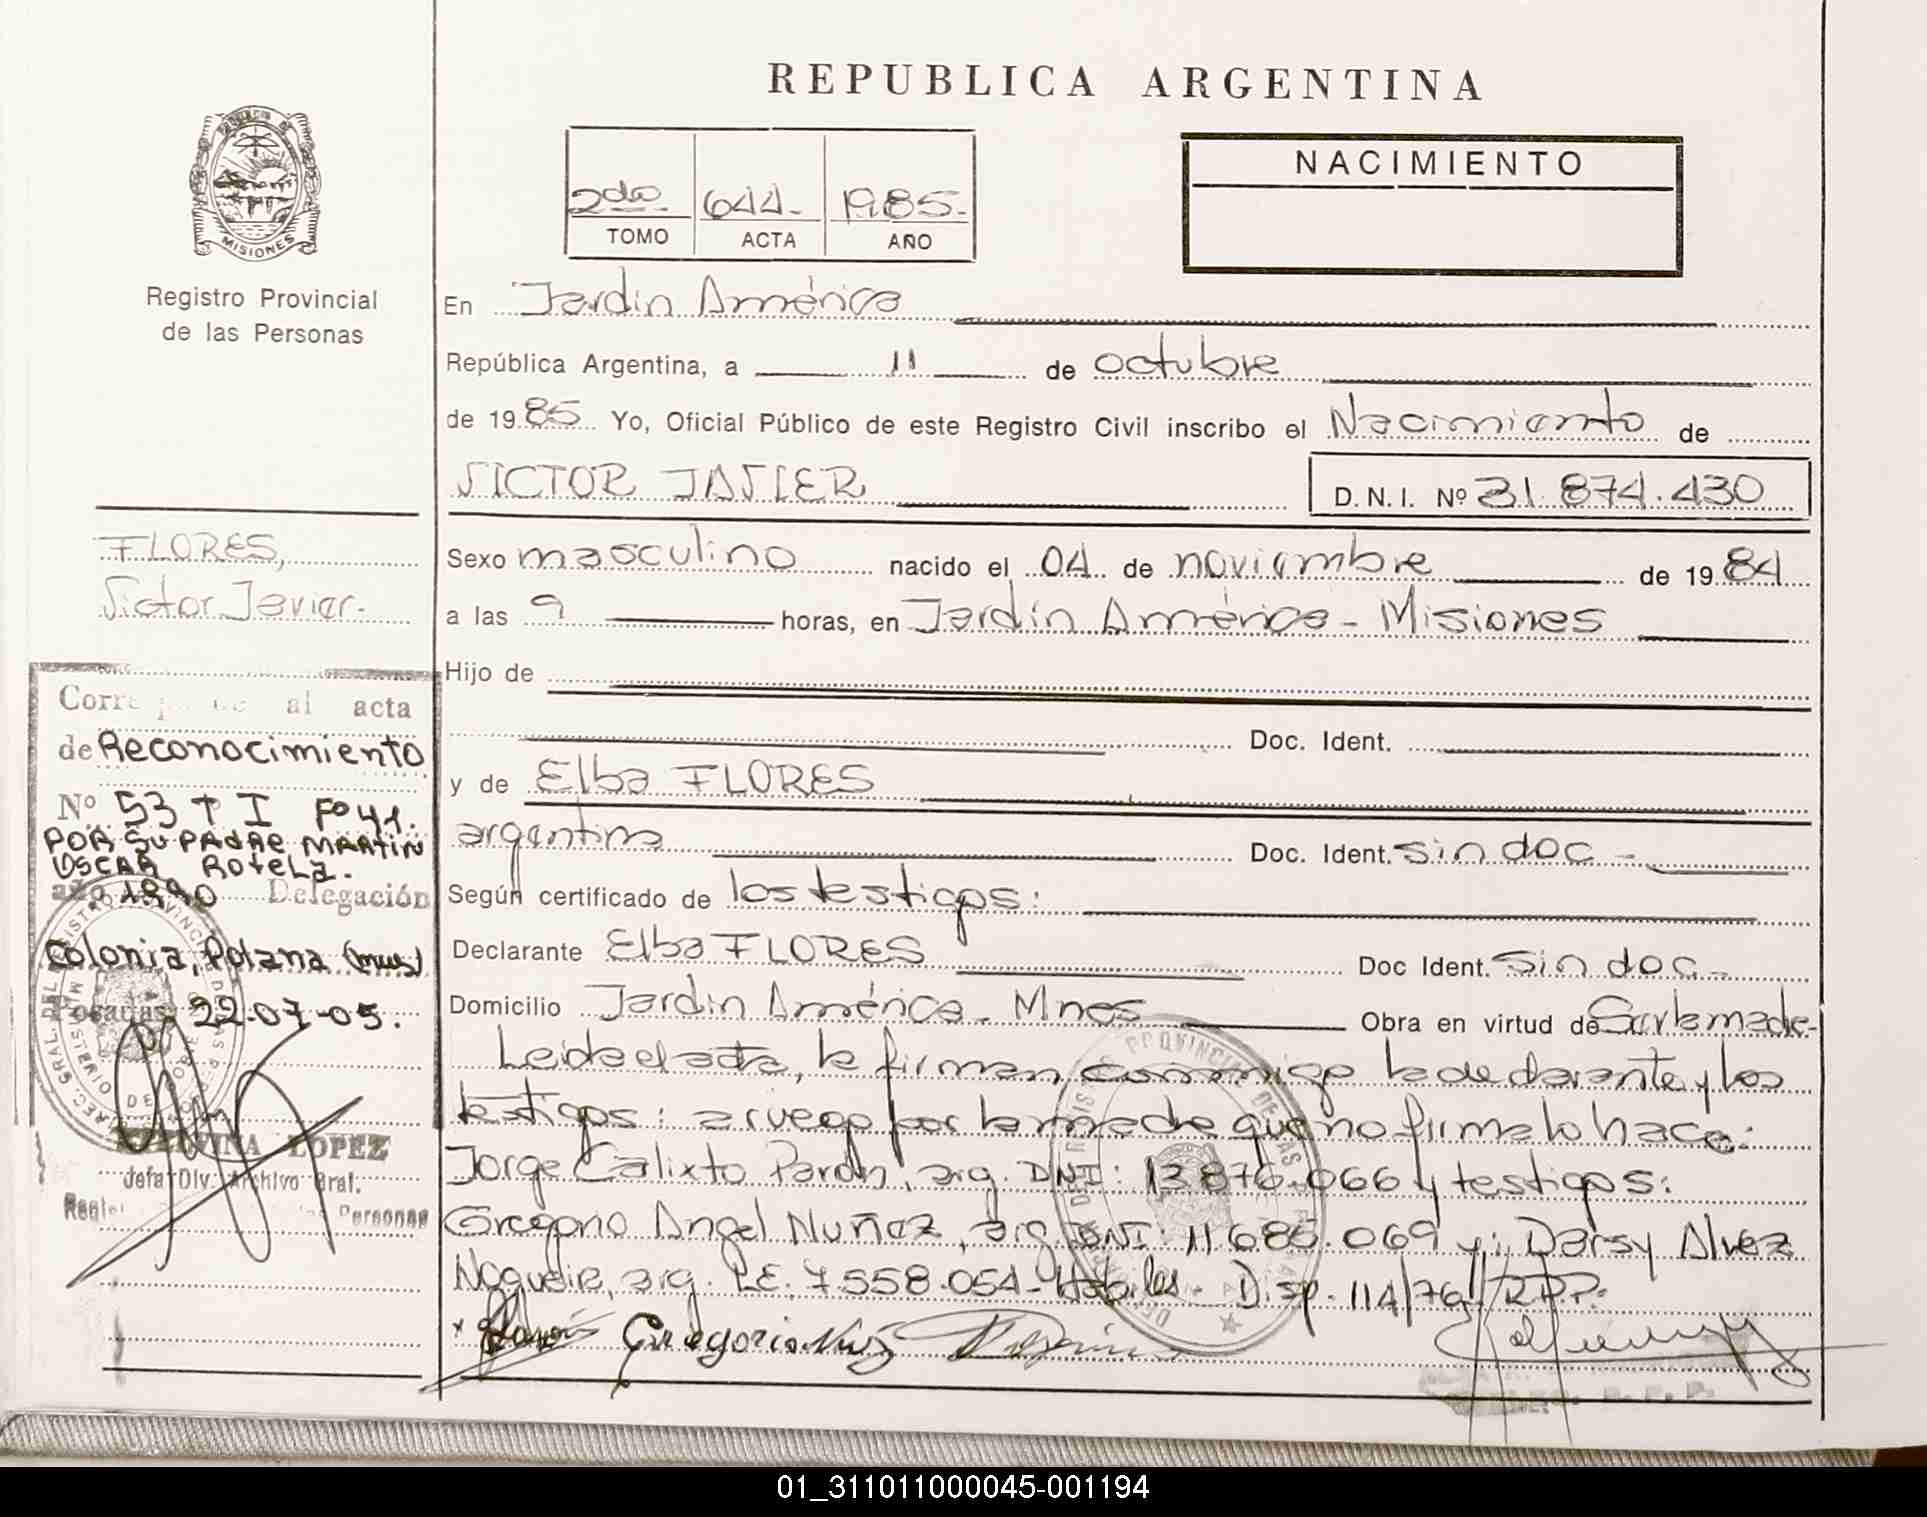 REPUBLICA ARGENTINA
MISIONES
Registro Provincial
de las Personas
2do 644 1985
TOMO ACTA AÑO
NACIMIENTO
En Jardín América
República Argentina, a 11 de octubre
de 1985 Yo, Oficial Público de este Registro Civil inscribo el Nacimiento de
VICTOR JAVIER D.N.I. Nº 31.874.430
FLORES,
Victor Javier.
Sexo masculino nacido el 04 de noviembre de 1984
a las 9 horas, en Jardín América - Misiones
Hijo de
Doc. Ident.
y de Elba FLORES
argentina Doc. Ident. sin doc -
Según certificado de los testigos:
Declarante Elba FLORES Doc Ident. Sin doc -
Domicilio Jardín América - Mnes Obra en virtud de Ser la madre-
Leida el acta, la firman conmigo la declarante y los
testigos: a ruego por la madre que no firma lo hace:
Jorge Calixto Pardn, arg. DNI: 13.876.066 y testigos:
Gregorio Angel Nuñez, arg. DNI: 11.685.069 y: Darsy Alvez
Nogueira, arg. L.E. 7.558.054 - Hábiles. Disp. 114/76/RPP.
Gregorio Nuñez
al acta
de Reconocimiento
Nº 53 T I Fº 41.
POR SU PADRE MARTIN
OSCAR ROTELA.
año 1990 Delegación
Colonia Polana (mnes)
Posadas, 22-07-05.
LOPEZ
Jefa Div. Archivo Gral.
Personas
01_311011000045-001194